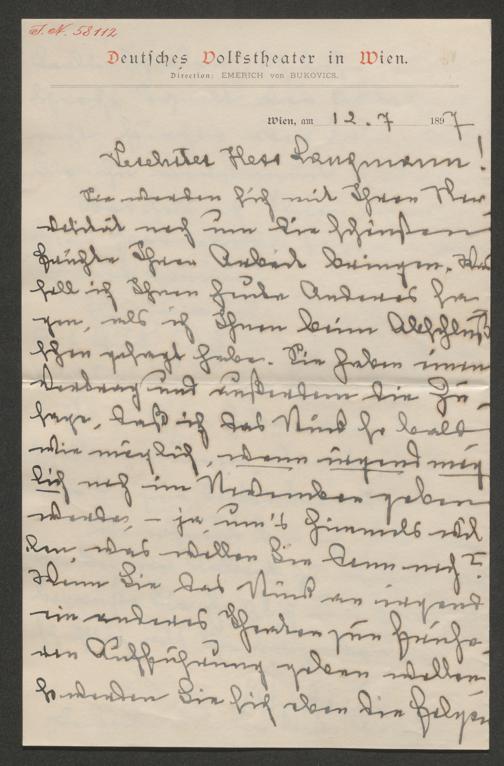 I. N. 58112
Deutsches Volkstheater in Wien.
Direction: EMERICH von BUKOVICS.
Wien, am 12. 7 1897
Geehrter Herr Langmann!
Sie werden sich mit Ihrer Ner-
vosität noch um die schönsten
Früchte Ihrer Arbeit bringen. Was
soll ich Ihnen heute Anderes sa-
gen, als ich Ihnen beim Abschluß
schon gesagt habe. Sie haben einen
Vertrag und außerdem die Zu-
sage, daß ich das Stück so bald
wie möglich, wenn irgend mög-
lich noch im November geben
werde, – ja, um's Himmels wil-
len, was wollen Sie denn noch?
Wenn Sie das Stück an irgend
ein anderes Theater zur frühe-
ren Aufführung geben wollen
so werden Sie sich eben die Folgen